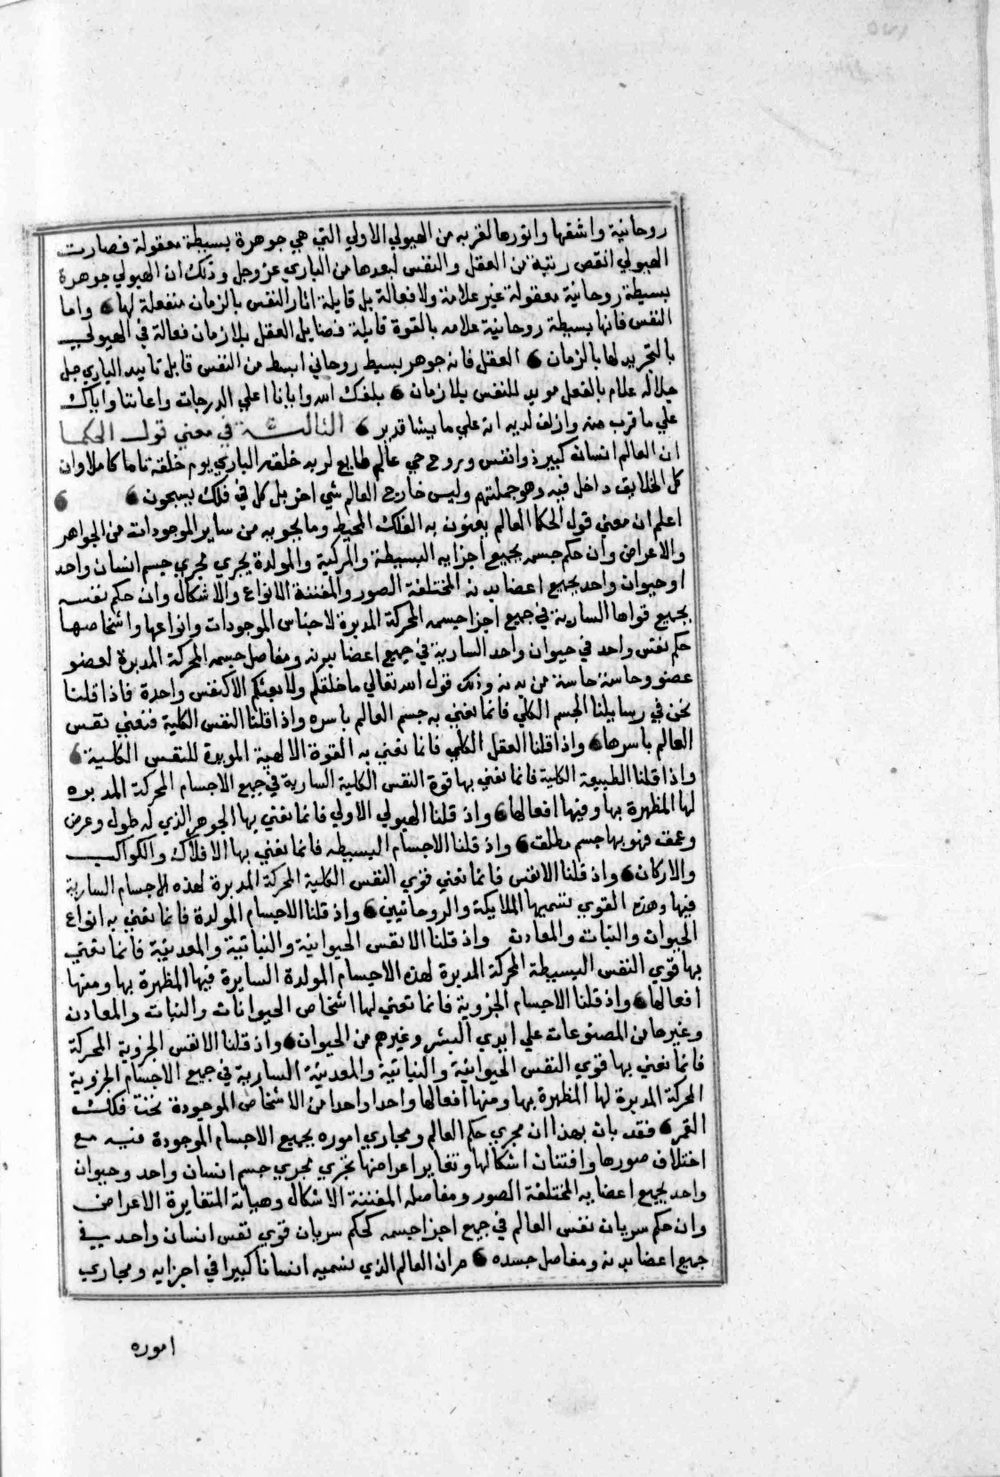 روحانية واشفها وانورها لقربه من الهيولي الاولي التي هي جوهرة بسيطة معقولة فصارت
الهيولي انقص رتبة من العقل والنفس لبعدها من الباري عز وجل وذلك ان الهيولي جوهرة
بسيطة روحانية معقولة غير علامة ولا فعالة بل قابلة اثار النفس بالزمان منفعلة لها واما
النفس فانها بسيطة روحانية علامه بالقوة قابلة فضايل العقل بلا زمان فعالة في الهيولي
بالتحريك لها بالزمان العقل فانه جوهر بسيط روحاني ابسط من النفس قابل تاييد الباري جل
جلاله علام بالفعل مويد للنفس بلا زمان بلغك الله وايانا اعلي الدرجات واعاننا واياك
علي ما قرب منه وازلف لديه انه علي ما يشا قدير الثالثة في معني قول الحكما
ان العالم انسان كبير ذو نفس وروح حي عالم طايع لربه خلقه الباري يوم خلقه تاما كاملا وان
كل الخلايق داخل فيه وهو جملتهم وليس خارج العالم شي اخر بل كل في فلك يسبحون
اعلم ان معني قول الحكما العالم يعنون به الفلك المحيط وما يحويه من ساير الموجودات من الجواهر
والاعراض وان حكم جسمه بجميع اجزايه البسيطة والمركبة والمولدة يجري مجري جسم انسان واحد
او حيوان واحد بجميع اعضا بدنه المختلفة الصور والمفننة الانواع والاشكال وان حكم نفسه
بجميع قواها السارية في جميع اجزا جسمه المحركة المدبرة لاجناس الموجودات وانواعها واشخاصها
حكم نفس واحد في حيوان واحد السارية في جميع اعضا بدنه ومفاصل جسمه المحركة المدبرة لعضو
عضو وحاسة حاسة من بدنه وذلك قول الله تعالي ما خلقكم ولا بعثكم الا كنفس واحدة فاذا قلنا
نحن في رسايلنا الجسم الكلي فانما نعني به جسم العالم باسره واذا قلنا النفس الكلية فنعني نفس
العالم باسرها واذا قلنا العقل الكلي فانما نعني به القوة الالهية المويدة للنفس الكلية
واذا قلنا الطبيعة الكلية فانما نعني بها قوة النفس الكلية السارية في جميع الاجسام المحركة المدبره
لها المظهرة بها وفيها افعالها واذ قلنا الهيولي الاولي فانما نعني بها الجوهر الذي له طول وعرض
وعمق فهو بها جسم مطلق واذ قلنا الاجسام البسيطه فانما نعني بها الافلاك والكواكب
والاركان واذ قلنا الانفس فانما نعني قوي النفس الكلية المحركة المدبرة لهذه الاجسام السارية
فيها وهذه القوي نسميها الملايكة والروحانيين واذ قلنا الاجسام المولدة فانما نعني به انواع
الحيوان والنبات والمعادن واذ قلنا الانفس الحيوانية والنباتية والمعدنية فانما نعني
بها قوي النفس البسيطة المحركة المدبرة لهذه الاجسام المولدة السايرة فيها المظهرة بها ومنها
افعالها واذ قلنا الاجسام الجزوية فانما نعني لها اشخاص الحيوانات والنبات والمعادن
وغيرها من المصنوعات علي ايدي البشر وغيرهم من الحيوان واذ قلنا الانفس الجزوية المحركة
فانما نعني بها قوي النفس الحيوانية والنباتية والمعدنية السارية في جميع الاجسام الجزوية
المحركة المدبرة لها المظهرة بها ومنها افعالها واحدا واحدا من الاشخاص الموجودة تحت فلك
القمر فقد بان بهذا ان مجري حكم العالم ومجاري اموره بجميع الاجسام الموجودة فيه مع
اختلاف صورها وافتنان اشكالها وتغاير اعراضها تجري مجري جسم انسان واحد وحيوان
واحد بجميع اعضايه المختلفة الصور ومفاصله المفننة الاشكال وهياته المتغايرة الاعراض
وان حكم سريان نفس العالم في جميع اجزا جسمه كحكم سريان قوي نفس انسان واحد في
جميع اعضا بدنه ومفاصل جسده مران العالم الذي نسميه انسانا كبيرا في اجزايه ومجاري
اموره